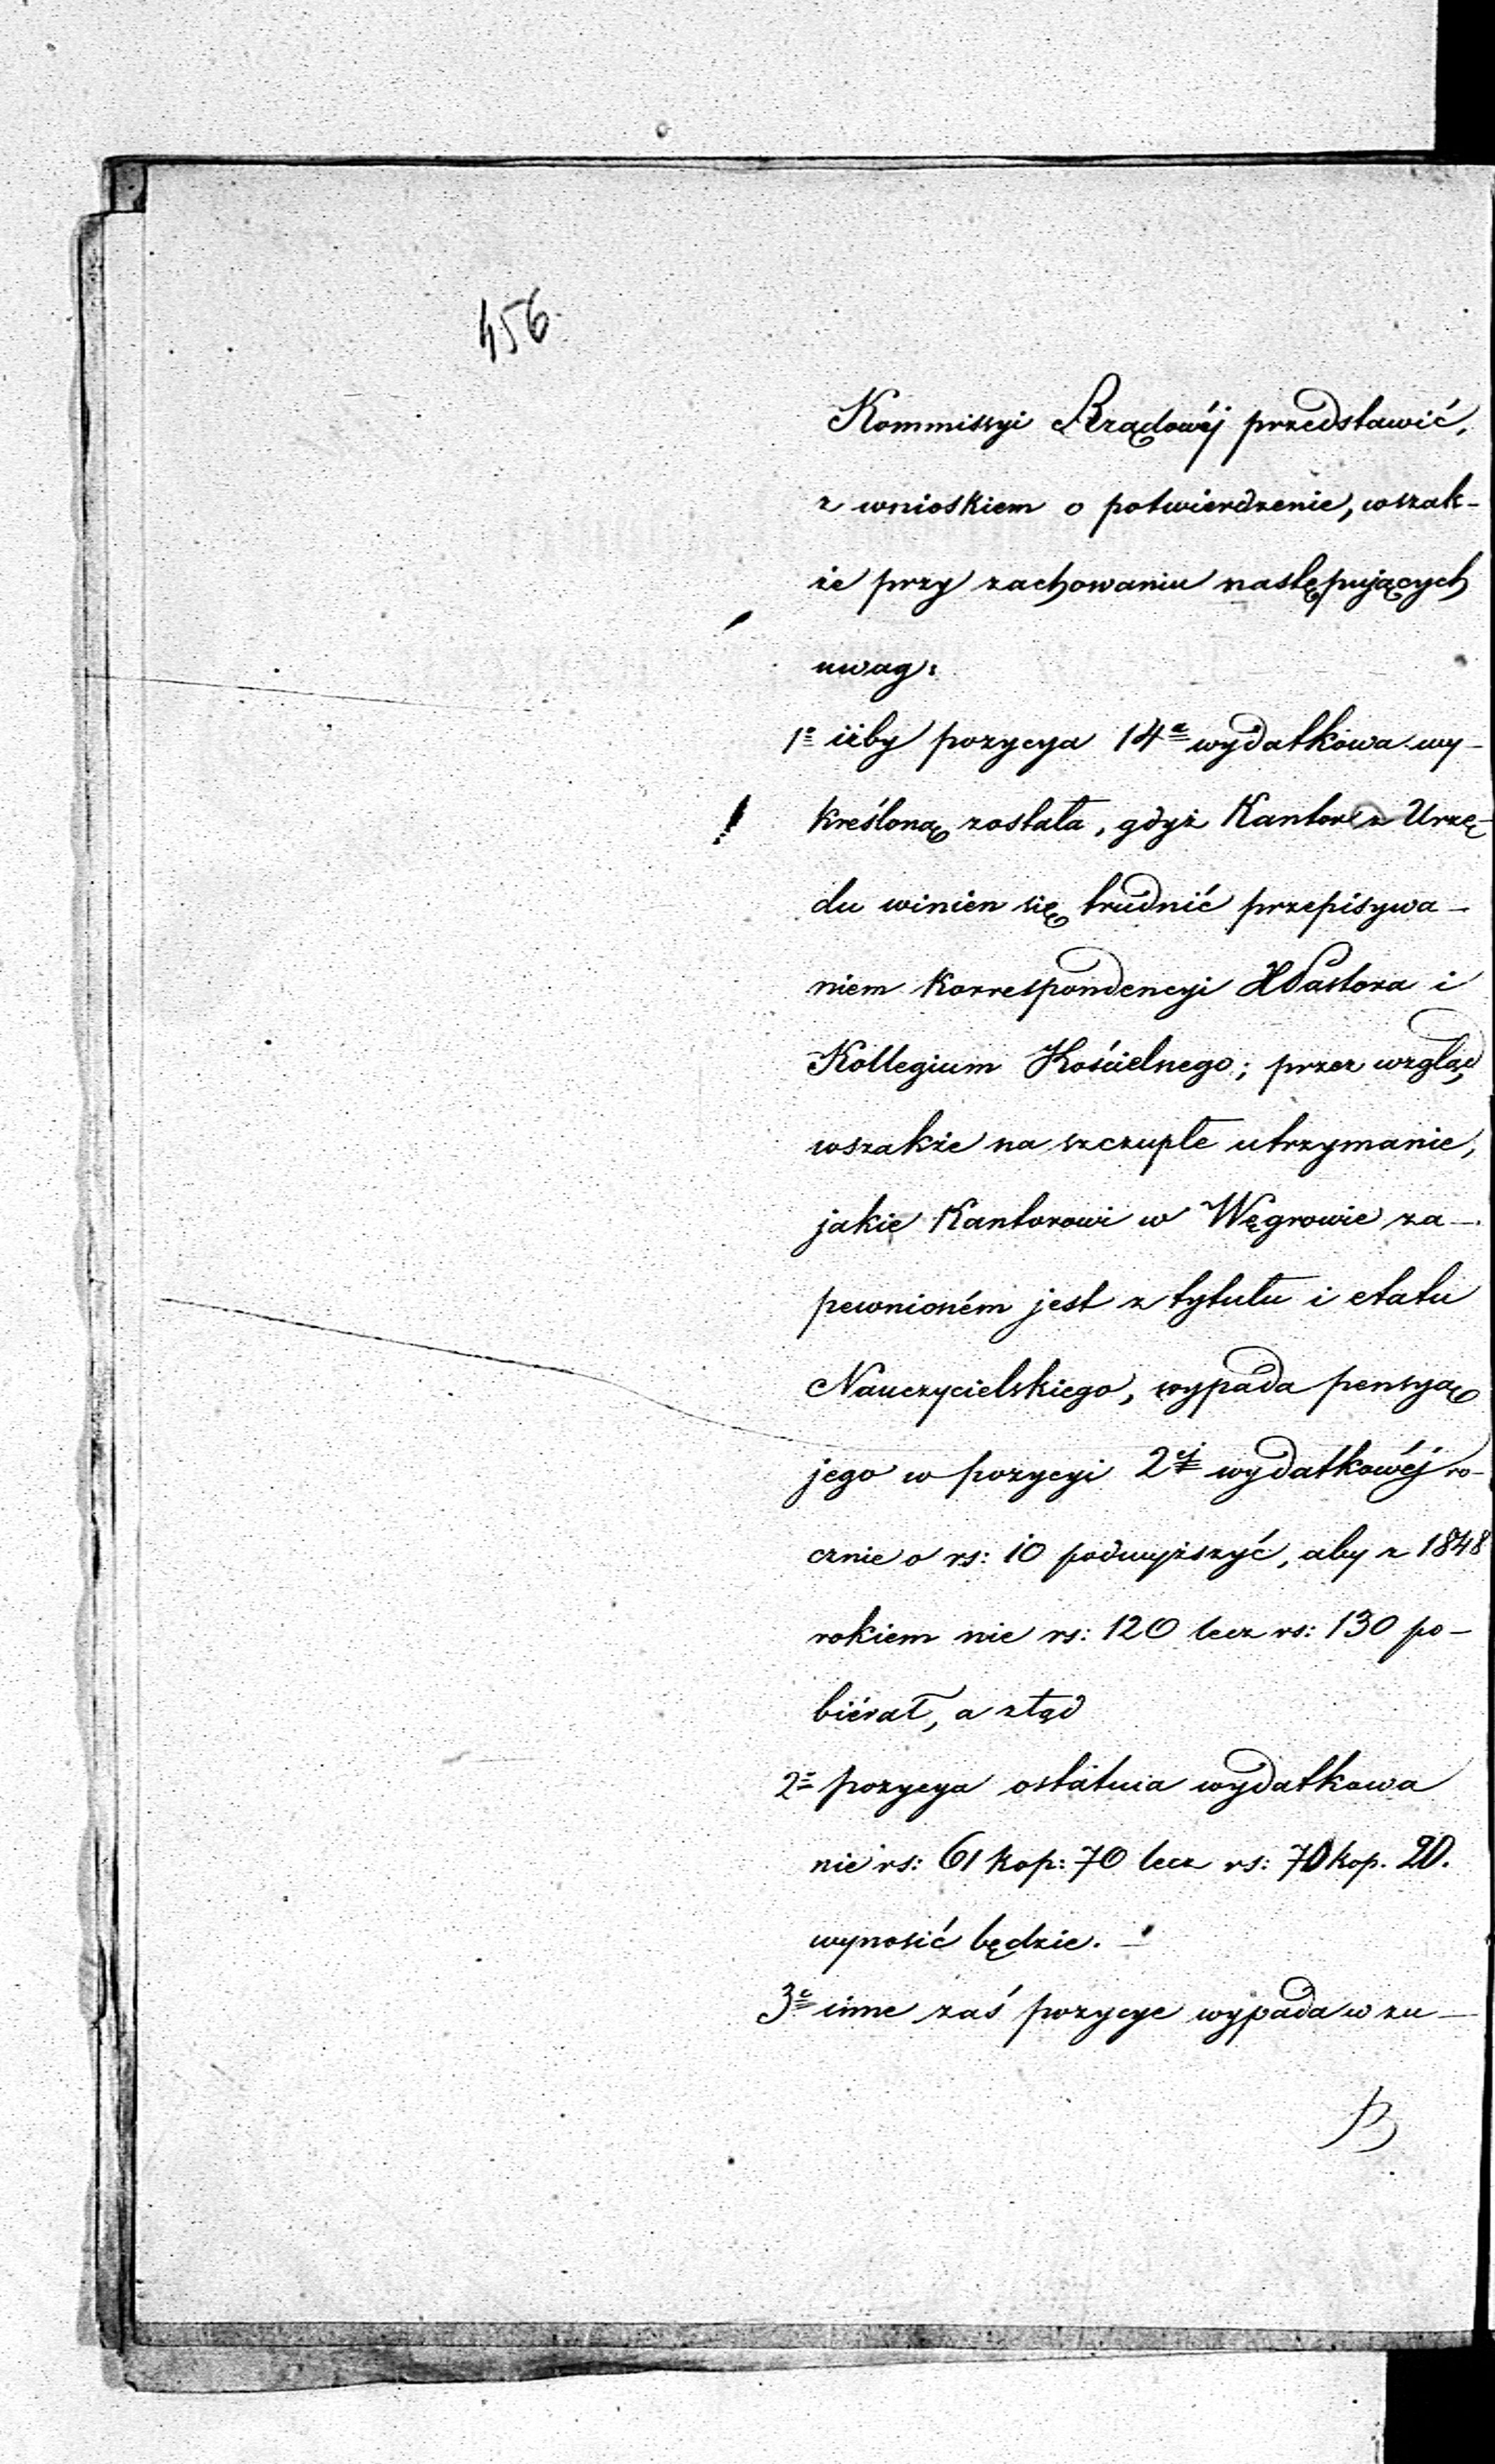 456.
Kommissyi Rządowéj przedstawić,
z wnioskiem o potwierdzenie, wszak-
że przy zachowaniu następujących
uwag:
1º iżby pozycya 14ª wydatkowa wy-
kreśloną została, gdyż Kantor z Urzę-
du winien się trudnić przepisywa-
niem Korrespondencyi XPastora i
Kollegium Kościelnego; przez wzgląd
wszakże na szczupłe utrzymanie,
jakie Kantorowi w Węgrowie za-
pewnioném jest z tytułu i etatu
Nauczycielskiego, wypada pensyą
jego w pozycyi 2éj wydatkowéj ro-
cznie o rs: 10 podwyższyć, aby z 1848
rokiem nie rs: 120 lecz rs: 130 po-
biérał, a ztąd
2º pozycya ostatnia wydatkowa
nie rs: 61 kop: 70 lecz rs: 70 kop. 20.
wynosić będzie. –
3º inne zaś pozycye wypada w zu-